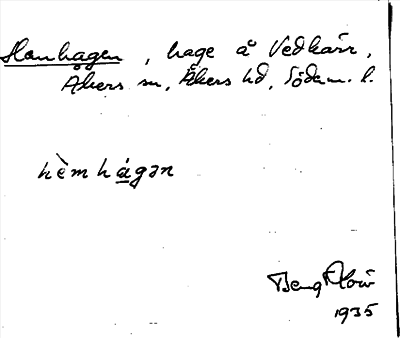 Hemhagen, hage å Vedkärr,
Åkers sn, Åkers hd, Söderm. l.
hèmhágən
Beng
1935